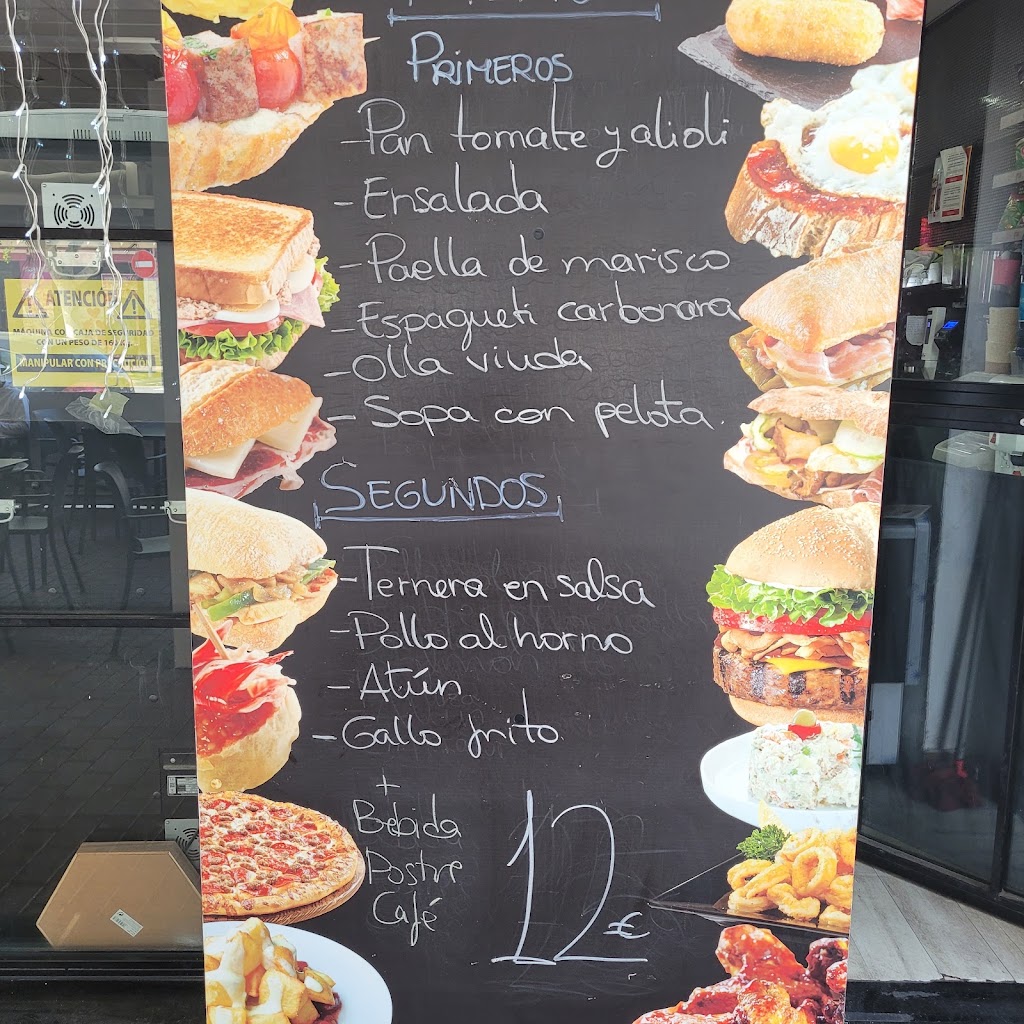 PRIMEROS
- Pan tomate y alioli
- Ensalada
- Paella de marisco
- Espagueti carbonara
- Olla viuda
- Sopa con pelota.
SEGUNDOS
- Ternera en salsa
- Pollo al horno
- Atún
- Gallo frito
+
Bebida
Postre
Café
12€
ATENCIÓN
MÁQUINA CON CAJA DE SEGURIDAD
CON UN PESO DE
MANIPULAR CON PRECAUCIÓN